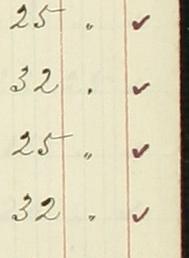 25 " ✓
32 " ✓
25 " ✓
32 " ✓